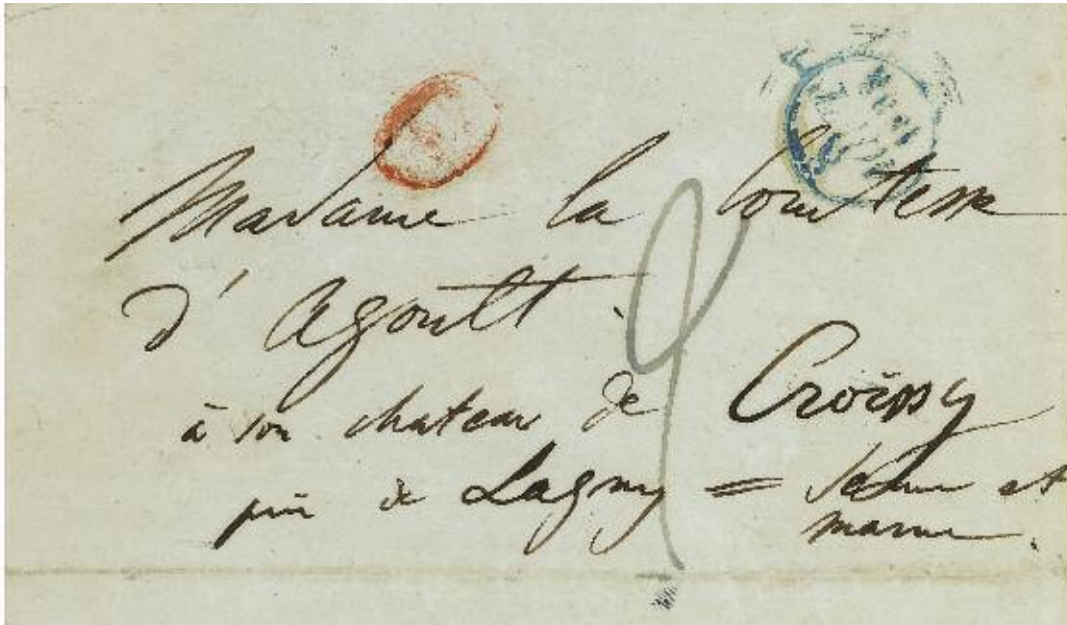 Madame la Comtesse
d' Agoult.
à son chateau de Croissy
près de Lagny = Seine et
marne.